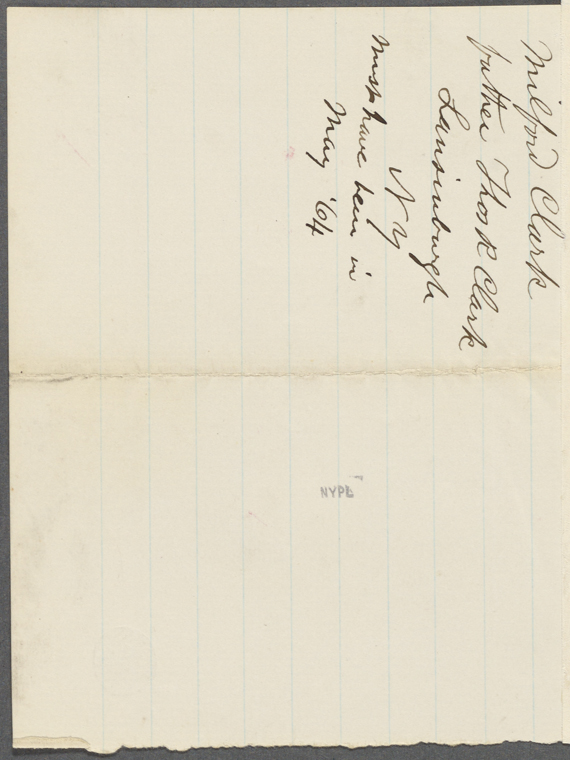 Milford Clark
father Thos K Clark
Lansinburgh
N Y
Must have been in
May '64
NYPL